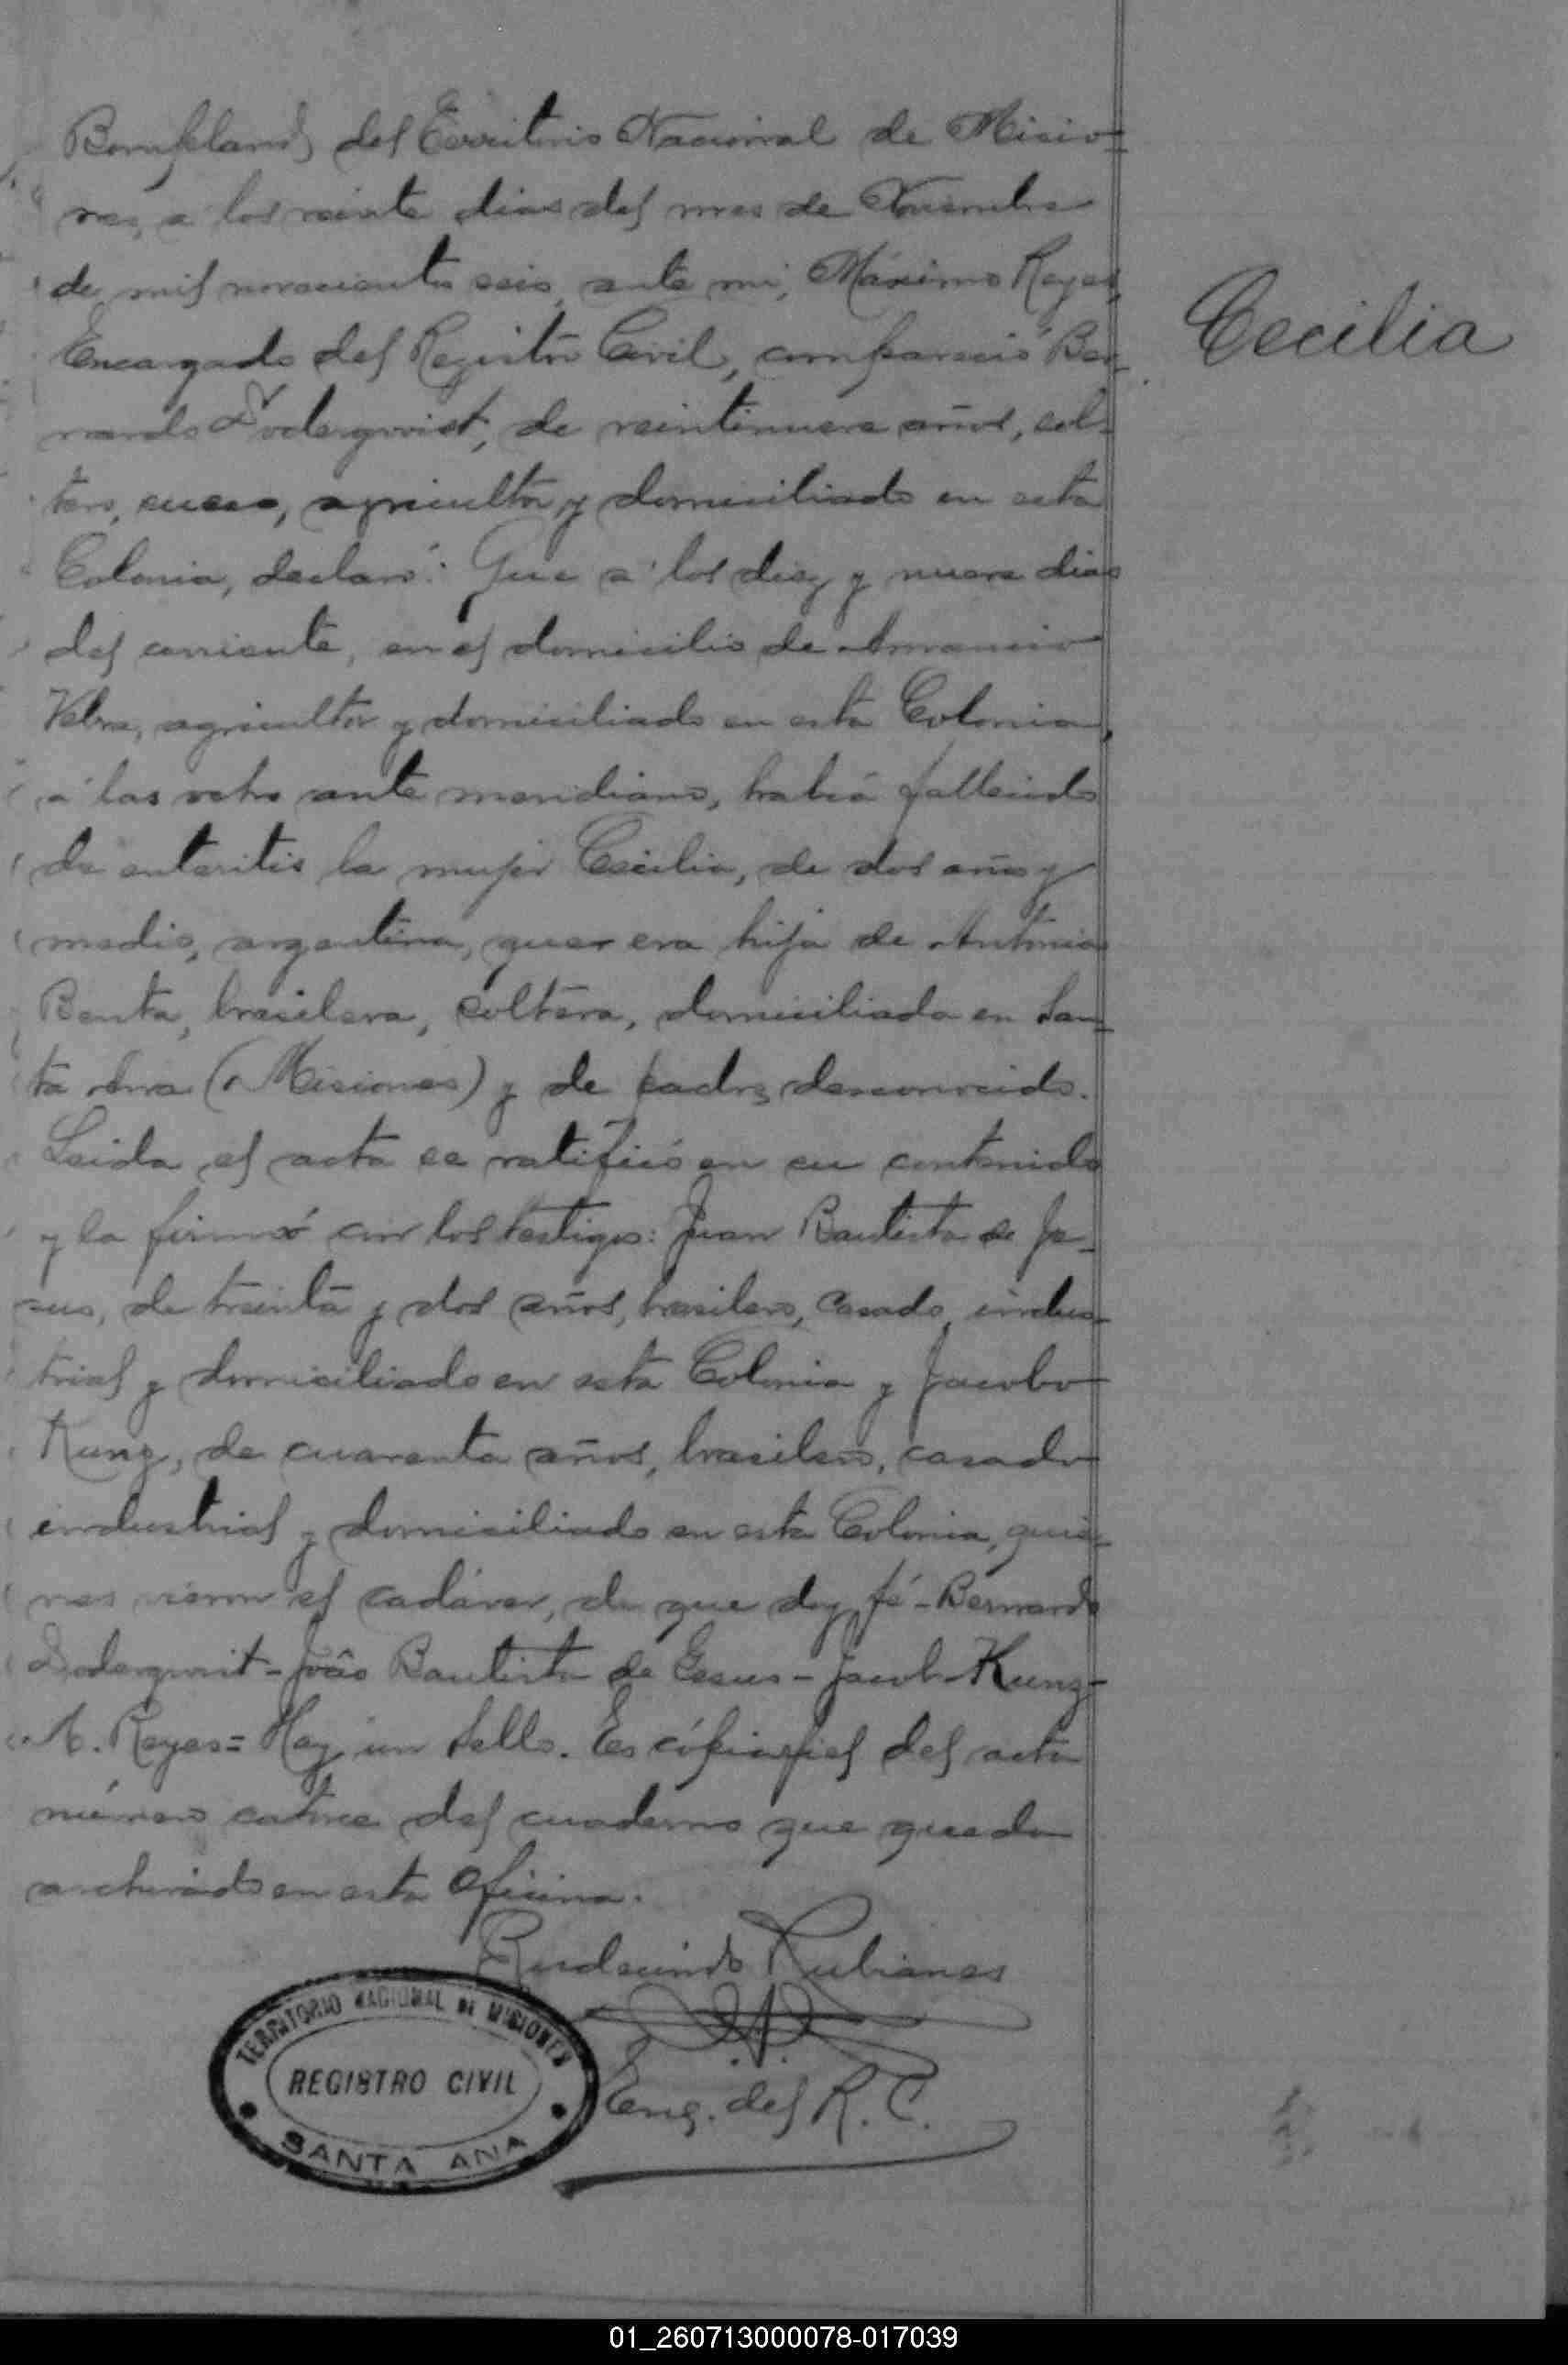 Bompland, del Territorio Nacional de Misio=
nes, a los veinte dias del mes de Noviembre
de mil novecientos seis, ante mi, Máximo Reyes,
Encargado del Registro Civil, compareció Ber-
nardo Sodergvist, de veintinueve años, sol-
tero, sueco, agricultor y domiciliado en esta
Colonia, declaró: Que a los diez y nueve dias
del corriente, en el domicilio de Amancio
agricultor y domiciliado en esta Colonia,
á las ocho ante meridiano, habia fallecido
de enteritis la mujer Cecilia, de dos años y
medio, argentina, que era hija de Antonia
Benta, brasilera, soltera, domiciliada en San=
ta Ana (Misiones) y de padre desconocido.
Leida el acta se ratificó en su contenido
y la firmó con los testigos: Juan Bautista de Je-
sus, de treinta y dos años, brasilero, casado, indus-
trial y domiciliado en esta Colonia y Jacobo
Kunz, de cuarenta años, brasilero, casado
industrial y domiciliado en esta Colonia, quie-
nes vieron el cadáver, de que doy fé - Bernardo
Sodergvist - João Bautista de Gesus - Jacob Kunz -
M. Reyes = Hay un sello. Es cópia fiel del acta
número catorce del cuaderno que queda
archivado en esta Oficina.
Rudecindo Rubianes
Eng. del R. C.
TERRITORIO NACIONAL DE MISIONES
REGISTRO CIVIL
SANTA ANA
Cecilia
01_260713000078-017039